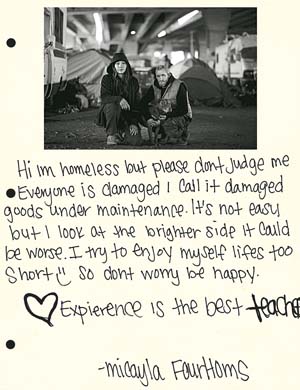 Hi im homeless but please dont judge me
Everyone is damaged I call it damaged
goods under maintenance. It's not easy
but I look at the brighter side it could
be worse. I try to enjoy myself lifes too
short so dont worry be happy.
Expierence is the best teache
-micayla FourHoms